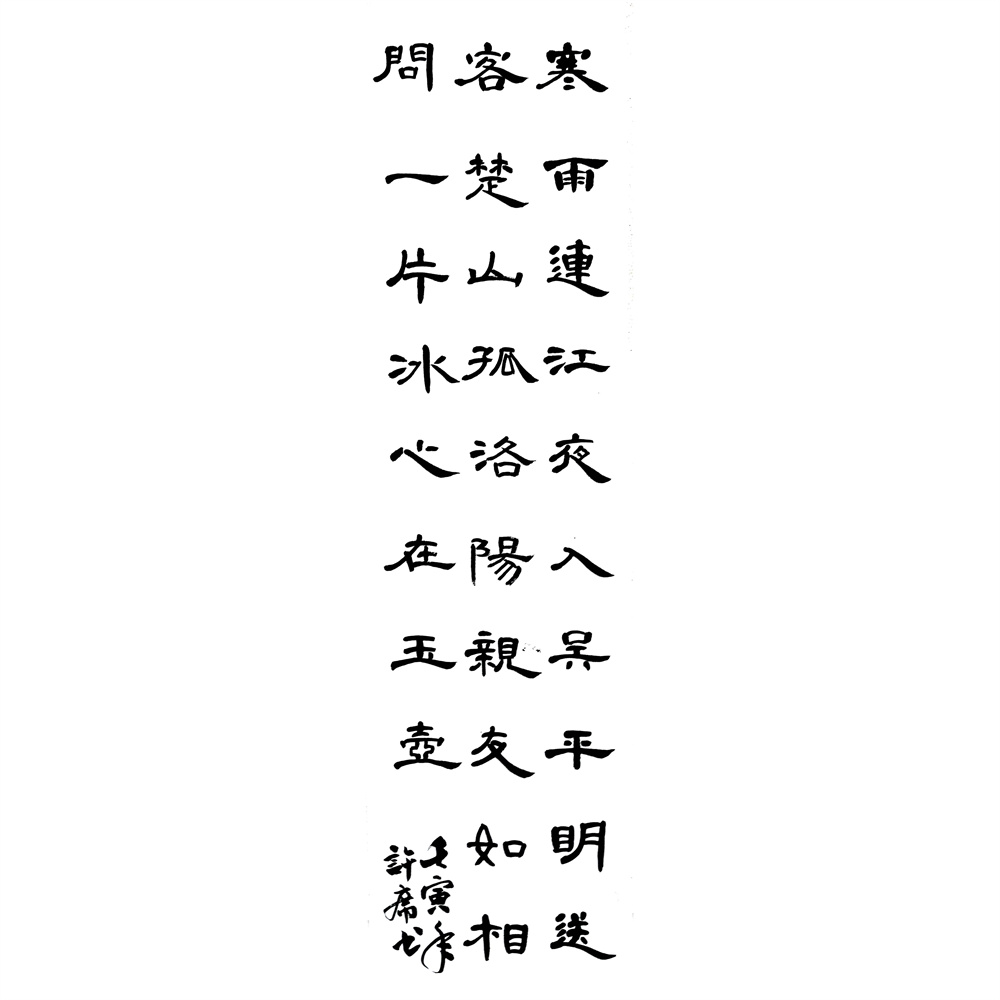 寒雨連江夜入吴平明送
客楚山孤洛陽親友如相
問一片冰心在玉壺
壬寅年
許席书